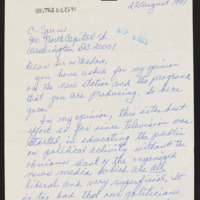 22 August 1991
C-Span
400 North Capitol St
Washington DC 20001
Dear Sir or Madam,
You have asked for my opinion
on the new station and the programs
that you are producing. So here
goes:
In my opinion, this is the best
effort so far since television was
started in educating the public
on political activity without the
obvious slant of the organized
news media which are all
liberal and very superficial. It
is too bad that our politicians